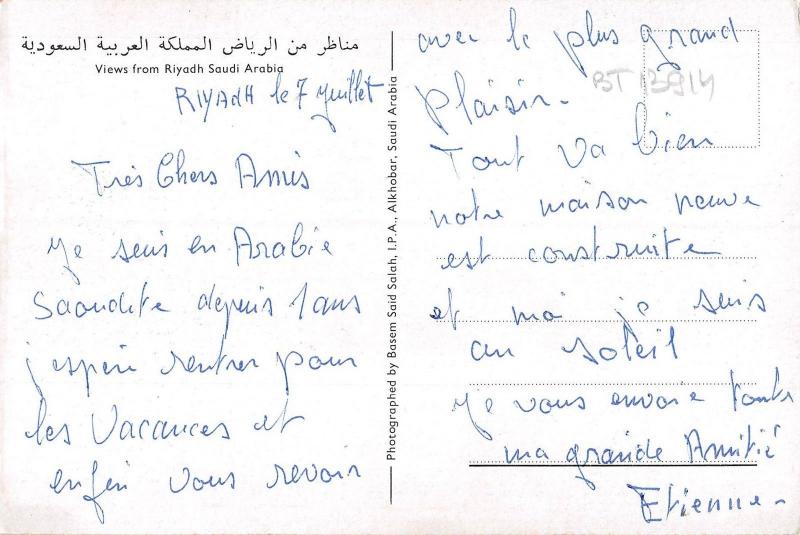 مناظر من الرياض المملكة العربية السعودية
Views from Riyadh Saudi Arabia
RIYADH le 7 Juillet
Très Chers Amis
Je suis en Arabie
Saoudite depuis 1 ans
j'espère rentrer pour
les Vacances et
enfin vous revoir
Photographed by Basem Said Salah, I.P.A., Alkhobar, Saudi Arabia
avec le plus grand
Plaisir.
BT 13914
Tout va bien
notre maison neuve
est construite
et moi je suis
au soleil
Je vous envoie toute
ma grande Amitié
Etienne.